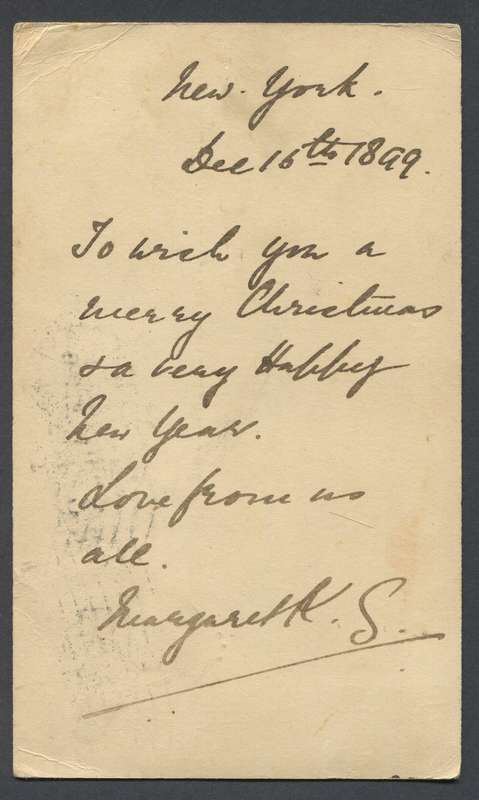 New. York.
Dec 16th 1899.
To wish you a
merry Christmas
& a very Happy
New Year.
Love from us
all.
Margaret K. S.